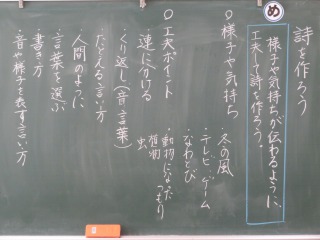 詩を作ろう
め
様子や気持ちが伝わるように、
工夫して詩を作ろう。
○様子や気持ち
・冬の風
・テレビ、ゲーム
・なわとび
・動物になったつもり
植物
虫
○工夫ポイント
連に分ける
・くり返し(音、言葉)
・たとえる言い方
人間のように
・言葉を選ぶ
書き方
・音や様子を表す言い方